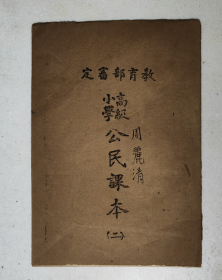 教育部審定
高級
小學
公民課本
(二)
周麗清